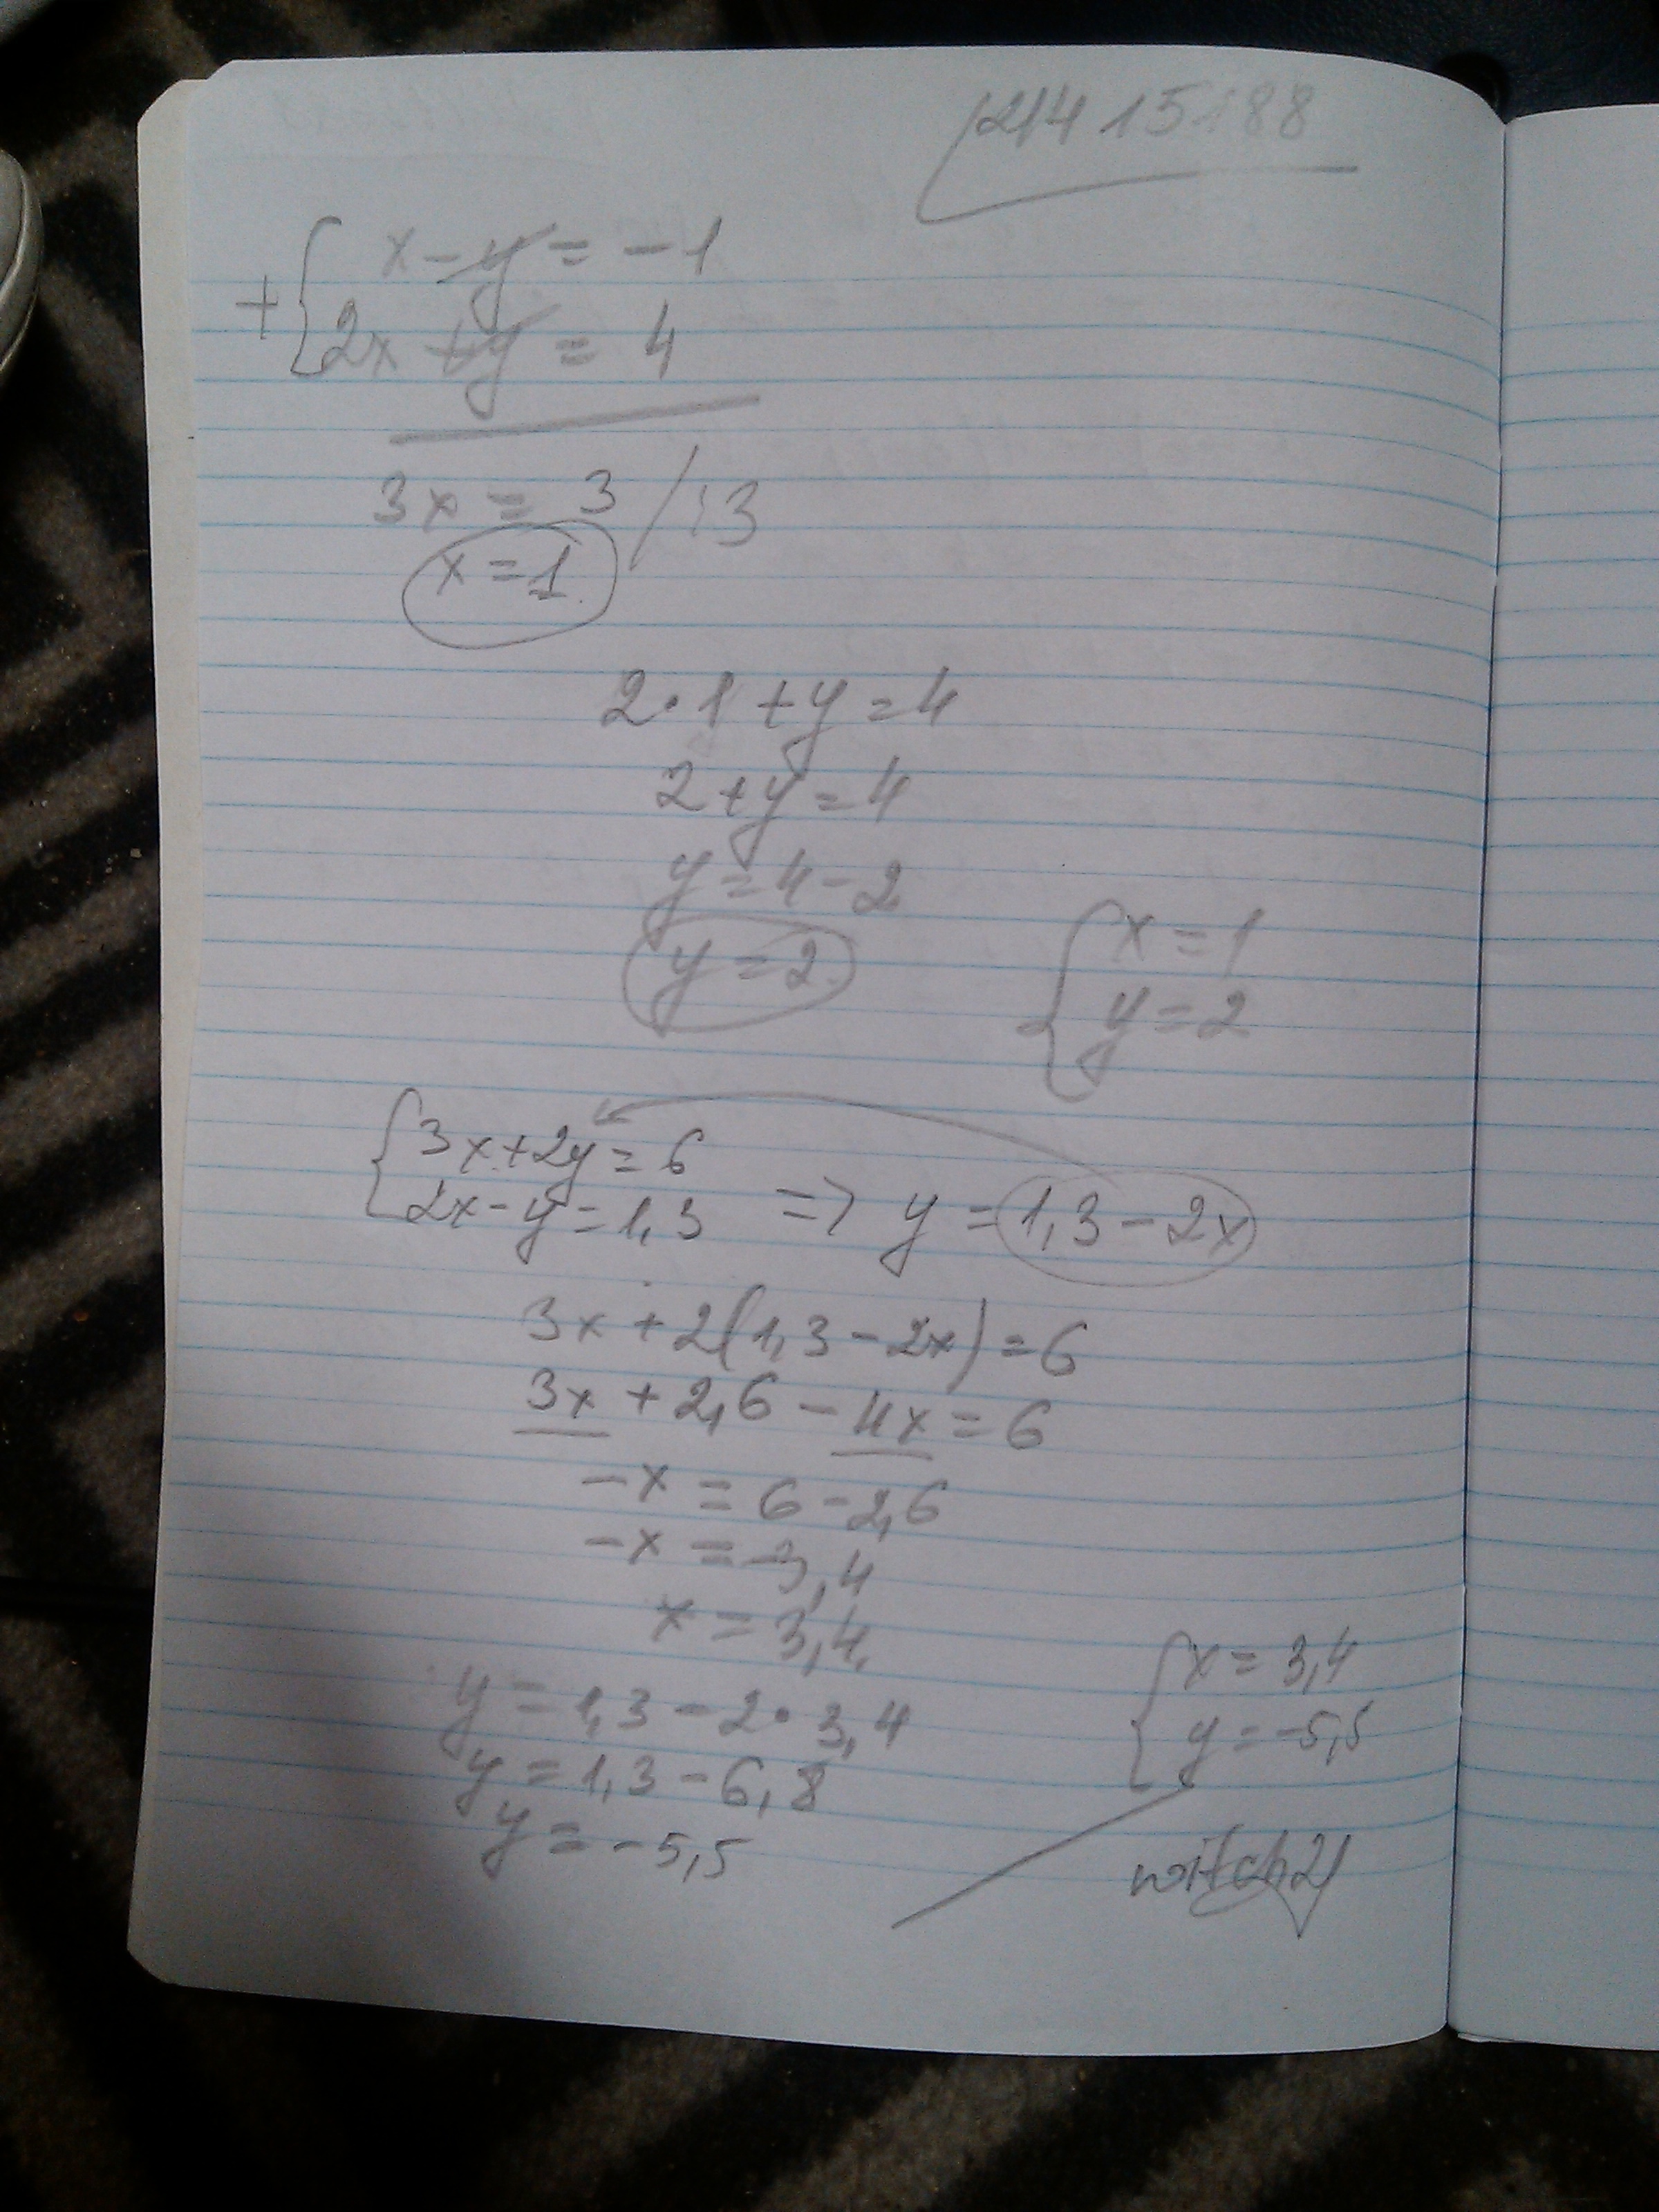 x-y = -1
+ 2x+y = 4
3x = 3 /:3
x=1
2•1+y=4
2+y=4
y=4-2
y=2
x=1
y=2
3x+2y=6
2x-y=1,3 => y=1,3-2x
3x+2(1,3-2x)=6
3x+2,6-4x=6
-x=6-2,6
-x=3,4
x=3,4
y=1,3-2•3,4
y=1,3-6,8
y=-5,5
x=3,4
y=-5,5
witch21